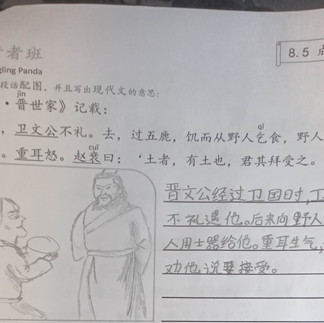 者班
gling Panda
8.5
段话配图，并且写出现代文的意思：
jìn
·晋世家》记载：
qǐ
，卫文公不礼。去，过五鹿，饥而从野人乞食，野人
cuī
。重耳怒。赵衰曰：‘土者，有土也，君其拜受之。
晋文公经过卫国时，卫
不礼遇他。后来向野人
人用土器给他。重耳生气，
劝他说要接受。